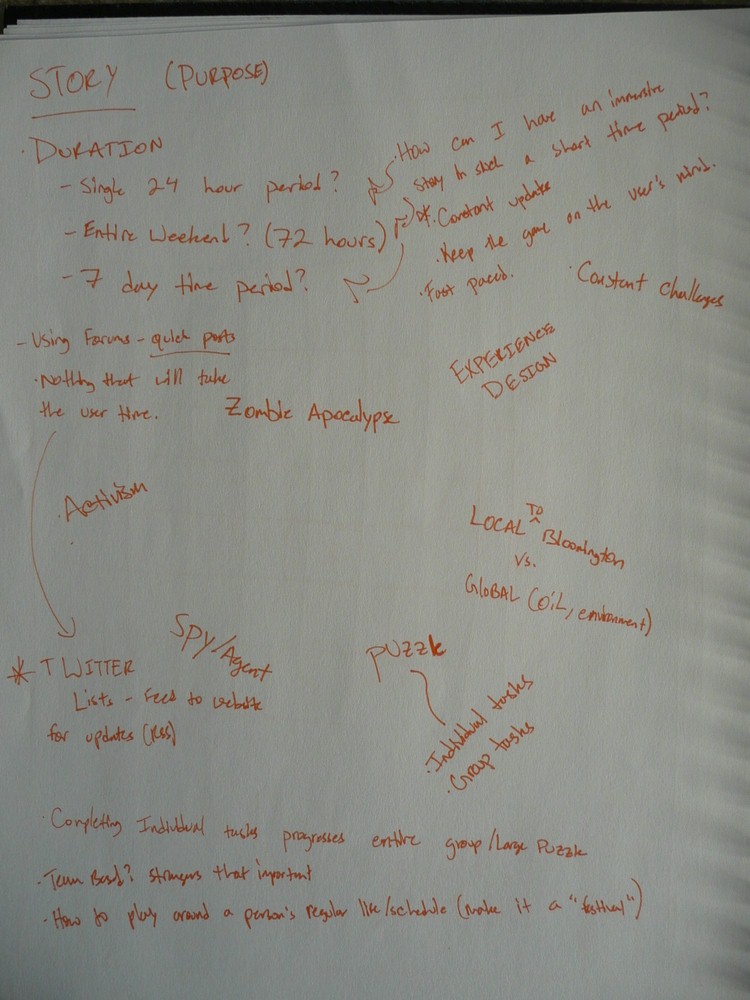 STORY (PURPOSE)
· DURATION
- Single 24 hour period?
- Entire Weekend? (72 hours)
- 7 day time period?
· How can I have an immersive
story in such a short time period?
* · Constant updates
· Keep the game on the user's mind.
· Fast paced.
· Constant challenges
- Using Forums - quick posts
· Nothing that will take
the user time.
Zombie Apocalypse
EXPERIENCE
DESIGN
· Activism
·
LOCAL TO Bloomington
vs.
GLOBAL (OIL, environment)
* TWITTER
Lists - Feed to website
for updates (RSS)
SPY/Agent
PUZZLE
· Individual tasks
· Group tasks
· Completing Individual tasks progresses entire group/Large Puzzle
· Team Based? strangers that important
· How to play around a person's regular life/schedule (make it a "festival")